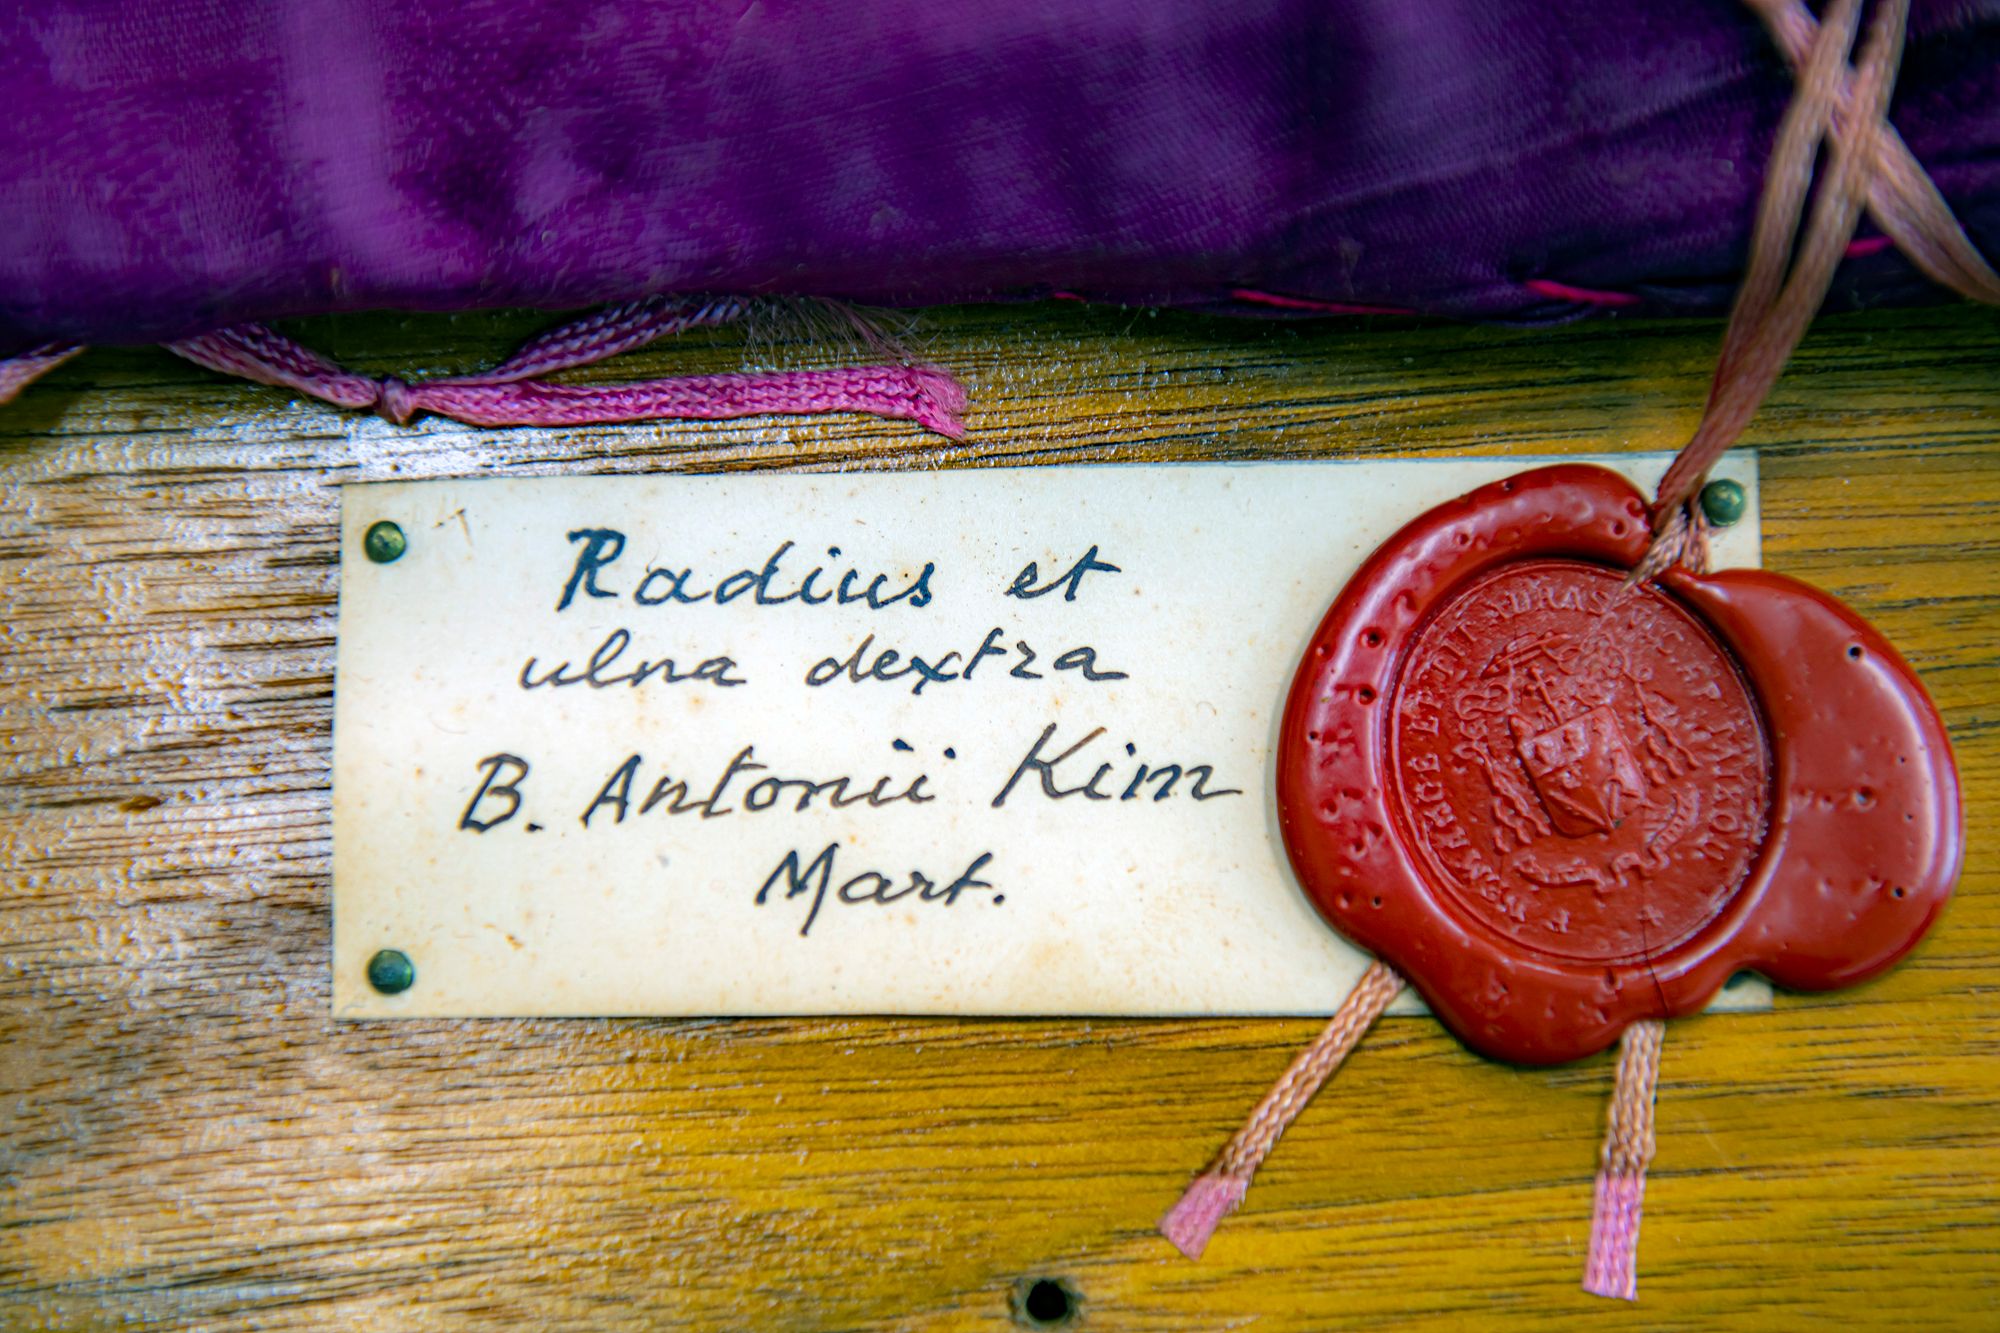 Radius et
ulna dextra
B. Antonii Kim
Mart.